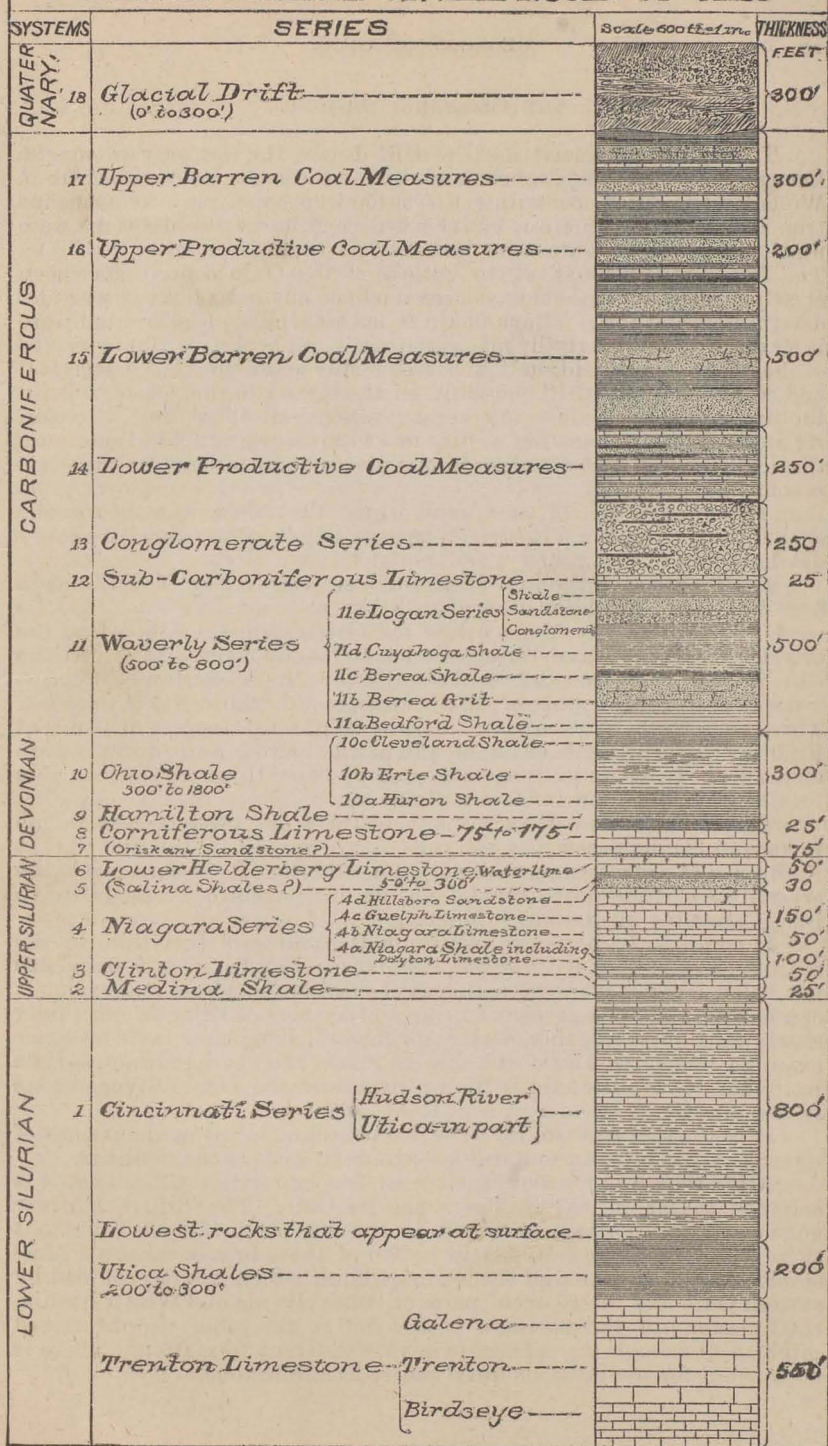 SYSTEMS SERIES Scale 600 ft=1 in. THICKNESS
FEET
QUATERNARY,
18 Glacial Drift 300'
(0' to 300')
CARBONIFEROUS
17 Upper Barren Coal Measures 300'
16 Upper Productive Coal Measures 200'
15 Lower Barren Coal Measures 500'
14 Lower Productive Coal Measures 250'
13 Conglomerate Series 250
12 Sub-Carboniferous Limestone 25
11 Waverly Series 500'
(500' to 800')
11e Logan Series Shale
Sandstone
Conglomerate
11d Cuyahoga Shale
11c Berea Shale
11b Berea Grit
11a Bedford Shale
DEVONIAN
10 Ohio Shale 300'
300' to 1800'
10c Cleveland Shale
10b Erie Shale
10a Huron Shale
9 Hamilton Shale 25'
8 Corniferous Limestone - 75' to 175' 75'
7 (Oriskany Sandstone?)
UPPER SILURIAN
6 Lower Helderberg Limestone, Waterlime 50'
50' to 300'
5 (Salina Shales?) 30
4 Niagara Series
4d Hillsboro Sandstone
4c Guelph Limestone 150'
4b Niagara Limestone 50'
4a Niagara Shale including 100'
Dayton Limestone
3 Clinton Limestone 50'
2 Medina Shale 25'
LOWER SILURIAN
1 Cincinnati Series Hudson River 800'
Utica-in part
Lowest rocks that appear at surface
Utica Shales 200'
200' to 300'
Galena
Trenton Limestone Trenton 550'
Birdseye